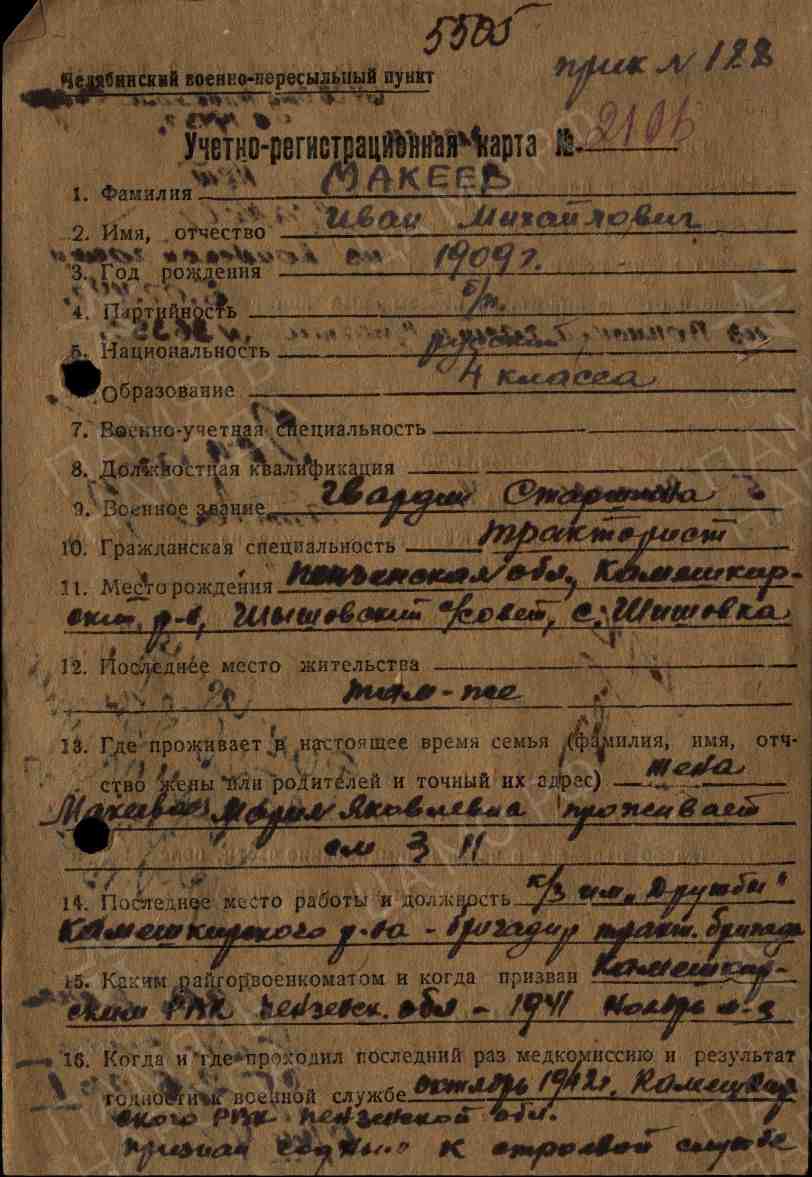 5505
прик № 122
Челябинский военно-пересыльный пункт
Учетно-регистрационная карта № 2106
1. Фамилия МАКЕЕВ
2. Имя, отчество Иван Михайлович
3. Год рождения 1909 г.
4. Партийность б/п.
5. Национальность русский
Образование 4 класса
7. Военно-учетная специальность
8. Должностная квалификация
9. Военное звание Гвардии Старшина
10. Гражданская специальность тракторист
11. Место рождения Пензенская обл, Камешкир-
ский р-н, Шышовский с/совет, с. Шишовка
12. Последнее место жительства
там-же
13. Где проживает в настоящее время семья (фамилия, имя, отч-
ство жены или родителей и точный их адрес) жена
Макеева Мария Яковлевна проживает
см 3 11
14. Последнее место работы и должность к/з им. Дружбы"
Камешкирского р-на - бригадир тракт. бригады
15. Каким райгорвоенкоматом и когда призван Камешкир-
ским РВК Пензенск. обл - 1941 Ноябрь м-ц
16. Когда и где проходил последний раз медкомиссию и результат
годности к военной службе октябрь 1942 г. Камешкир
ского РВК Пензенской обл.
признан годным к строевой службе